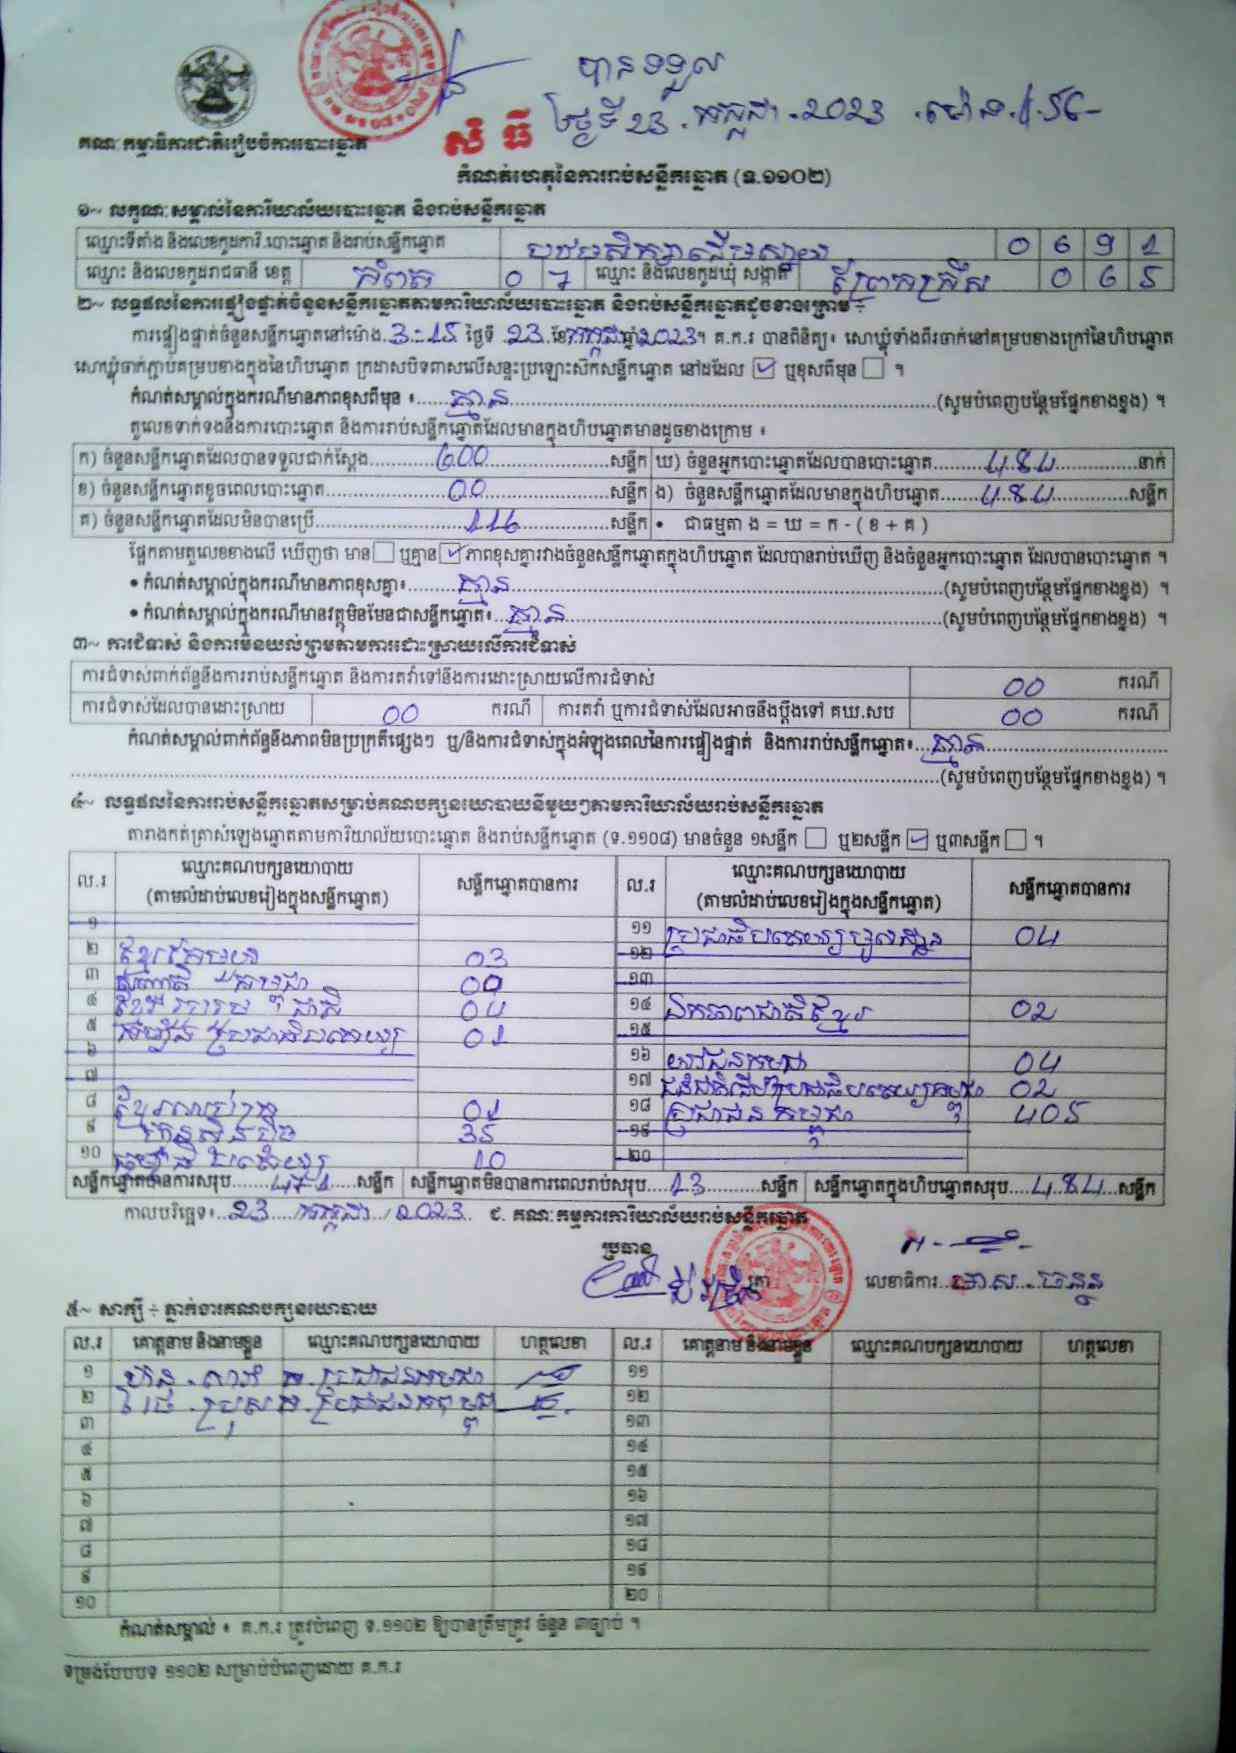 បានទទួល
ថ្ងៃទី 23 . កក្កដា . 2023 . ម៉ោង
គណៈកម្មាធិការជាតិរៀបចំការបោះឆ្នោត
កំណត់ហេតុនៃការរាប់សន្លឹកឆ្នោត (ទ.១១០២)
១~ លក្ខណៈសម្គាល់នៃការិយាល័យបោះឆ្នោត និងរាប់សន្លឹកឆ្នោត
ឈ្មោះទីតាំង និងលេខកូដការិ.បោះឆ្នោត និងរាប់សន្លឹកឆ្នោត 0 6 9 1
ឈ្មោះ និងលេខកូដរាជធានី ខេត្ត កំពត 0 7 ឈ្មោះ និងលេខកូដឃុំ សង្កាត់ ព្រែកក្រឹស 0 6 5
២~ លទ្ធផលនៃការផ្ទៀងផ្ទាត់ចំនួនសន្លឹកឆ្នោតតាមការិយាល័យបោះឆ្នោត និងរាប់សន្លឹកឆ្នោតដូចខាងក្រោម ÷
ការផ្ទៀងផ្ទាត់ចំនួនសន្លឹកឆ្នោតនៅម៉ោង 3:15 ថ្ងៃទី 23 ខែកក្កដា ឆ្នាំ2023។ គ.ក.រ បានពិនិត្យ៖ សោឃ្មុំទាំងពីរចាក់នៅគម្របខាងក្រៅនៃហិបឆ្នោត
សោឃ្មុំចាក់ភ្ជាប់គម្របខាងក្នុងនៃហិបឆ្នោត ក្រដាសបិទពាសលើសន្ទះប្រឡោះសិកសន្លឹកឆ្នោត នៅដដែល ☑ ឬខុសពីមុន ☐ ។
កំណត់សម្គាល់ក្នុងករណីមានភាពខុសពីមុន ៖ គ្មាន (សូមបំពេញបន្ថែមផ្នែកខាងខ្នង) ។
តួលេខទាក់ទងនឹងការបោះឆ្នោត និងការរាប់សន្លឹកឆ្នោតដែលមានក្នុងហិបឆ្នោតមានដូចខាងក្រោម ៖
ក) ចំនួនសន្លឹកឆ្នោតដែលបានទទួលជាក់ស្តែង 600 សន្លឹក ឃ) ចំនួនអ្នកបោះឆ្នោតដែលបានបោះឆ្នោត 484 នាក់
ខ) ចំនួនសន្លឹកឆ្នោតខូចពេលបោះឆ្នោត 00 សន្លឹក ង) ចំនួនសន្លឹកឆ្នោតដែលមានក្នុងហិបឆ្នោត 484 សន្លឹក
គ) ចំនួនសន្លឹកឆ្នោតដែលមិនបានប្រើ 116 សន្លឹក • ជាធម្មតា ង = ឃ = ក - ( ខ + គ )
ផ្អែកតាមតួលេខខាងលើ ឃើញថា មាន ☐ ឬគ្មាន ☑ ភាពខុសគ្នារវាងចំនួនសន្លឹកឆ្នោតក្នុងហិបឆ្នោត ដែលបានរាប់ឃើញ និងចំនួនអ្នកបោះឆ្នោត ដែលបានបោះឆ្នោត ។
• កំណត់សម្គាល់ក្នុងករណីមានភាពខុសគ្នា៖ គ្មាន (សូមបំពេញបន្ថែមផ្នែកខាងខ្នង) ។
• កំណត់សម្គាល់ក្នុងករណីមានវត្ថុមិនមែនជាសន្លឹកឆ្នោត៖ គ្មាន (សូមបំពេញបន្ថែមផ្នែកខាងខ្នង) ។
៣~ ការជំទាស់ និងការមិនយល់ព្រមតាមការដោះស្រាយលើការជំទាស់
ការជំទាស់ពាក់ព័ន្ធនឹងការរាប់សន្លឹកឆ្នោត និងការតវ៉ាទៅនឹងការដោះស្រាយលើការជំទាស់ 00 ករណី
ការជំទាស់ដែលបានដោះស្រាយ 00 ករណី ការតវ៉ា ឬការជំទាស់ដែលអាចនឹងប្តឹងទៅ គឃ.សប 00 ករណី
កំណត់សម្គាល់ពាក់ព័ន្ធនឹងភាពមិនប្រក្រតីផ្សេងៗ ឬ/និងការជំទាស់ក្នុងអំឡុងពេលនៃការផ្ទៀងផ្ទាត់ និងការរាប់សន្លឹកឆ្នោត៖ គ្មាន
(សូមបំពេញបន្ថែមផ្នែកខាងខ្នង) ។
៤~ លទ្ធផលនៃការរាប់សន្លឹកឆ្នោតសម្រាប់គណបក្សនយោបាយនីមួយៗតាមការិយាល័យរាប់សន្លឹកឆ្នោត
តារាងកត់ត្រាសំឡេងឆ្នោតតាមការិយាល័យបោះឆ្នោត និងរាប់សន្លឹកឆ្នោត (ទ.១១០៨) មានចំនួន ១សន្លឹក ☐ ឬ២សន្លឹក ☑ ឬ៣សន្លឹក ☐ ។
ល.រ ឈ្មោះគណបក្សនយោបាយ (តាមលំដាប់លេខរៀងក្នុងសន្លឹកឆ្នោត) សន្លឹកឆ្នោតបានការ ល.រ ឈ្មោះគណបក្សនយោបាយ (តាមលំដាប់លេខរៀងក្នុងសន្លឹកឆ្នោត) សន្លឹកឆ្នោតបានការ
១ ១១ ប្រជាធិបតេយ្យមូលដ្ឋាន 04
២ 03 ១២
៣ ១៣
៤ 04 ១៤ ឯកភាពជាតិខ្មែរ 02
៥ 01 ១៥
៦ ១៦ យុវជនកម្ពុជា 04
៧ ១៧ 02
៨ 01 ១៨ ប្រជាជនកម្ពុជា 405
៩ 35 ១៩
១០ 10 ២០
សន្លឹកឆ្នោតបានការសរុប 471 សន្លឹក សន្លឹកឆ្នោតមិនបានការពេលរាប់សរុប 13 សន្លឹក សន្លឹកឆ្នោតក្នុងហិបឆ្នោតសរុប 484 សន្លឹក
កាលបរិច្ឆេទ៖ 23 / កក្កដា / 2023 ជ. គណៈកម្មការការិយាល័យរាប់សន្លឹកឆ្នោត
ប្រធាន
លេខាធិការ
៥~ សាក្សី ÷ ភ្នាក់ងារគណបក្សនយោបាយ
ល.រ គោត្តនាម និងនាមខ្លួន ឈ្មោះគណបក្សនយោបាយ ហត្ថលេខា ល.រ គោត្តនាម និងនាមខ្លួន ឈ្មោះគណបក្សនយោបាយ ហត្ថលេខា
១ គ.ប្រជាជនកម្ពុជា ១១
២ គ.ប្រជាជនកម្ពុជា ១២
៣ ១៣
៤ ១៤
៥ ១៥
៦ ១៦
៧ ១៧
៨ ១៨
៩ ១៩
១០ ២០
កំណត់សម្គាល់ ៖ គ.ក.រ ត្រូវបំពេញ ទ.១១០២ ឱ្យបានត្រឹមត្រូវ ចំនួន ៣ច្បាប់ ។
ទម្រង់បែបបទ ១១០២ សម្រាប់បំពេញដោយ គ.ក.រ